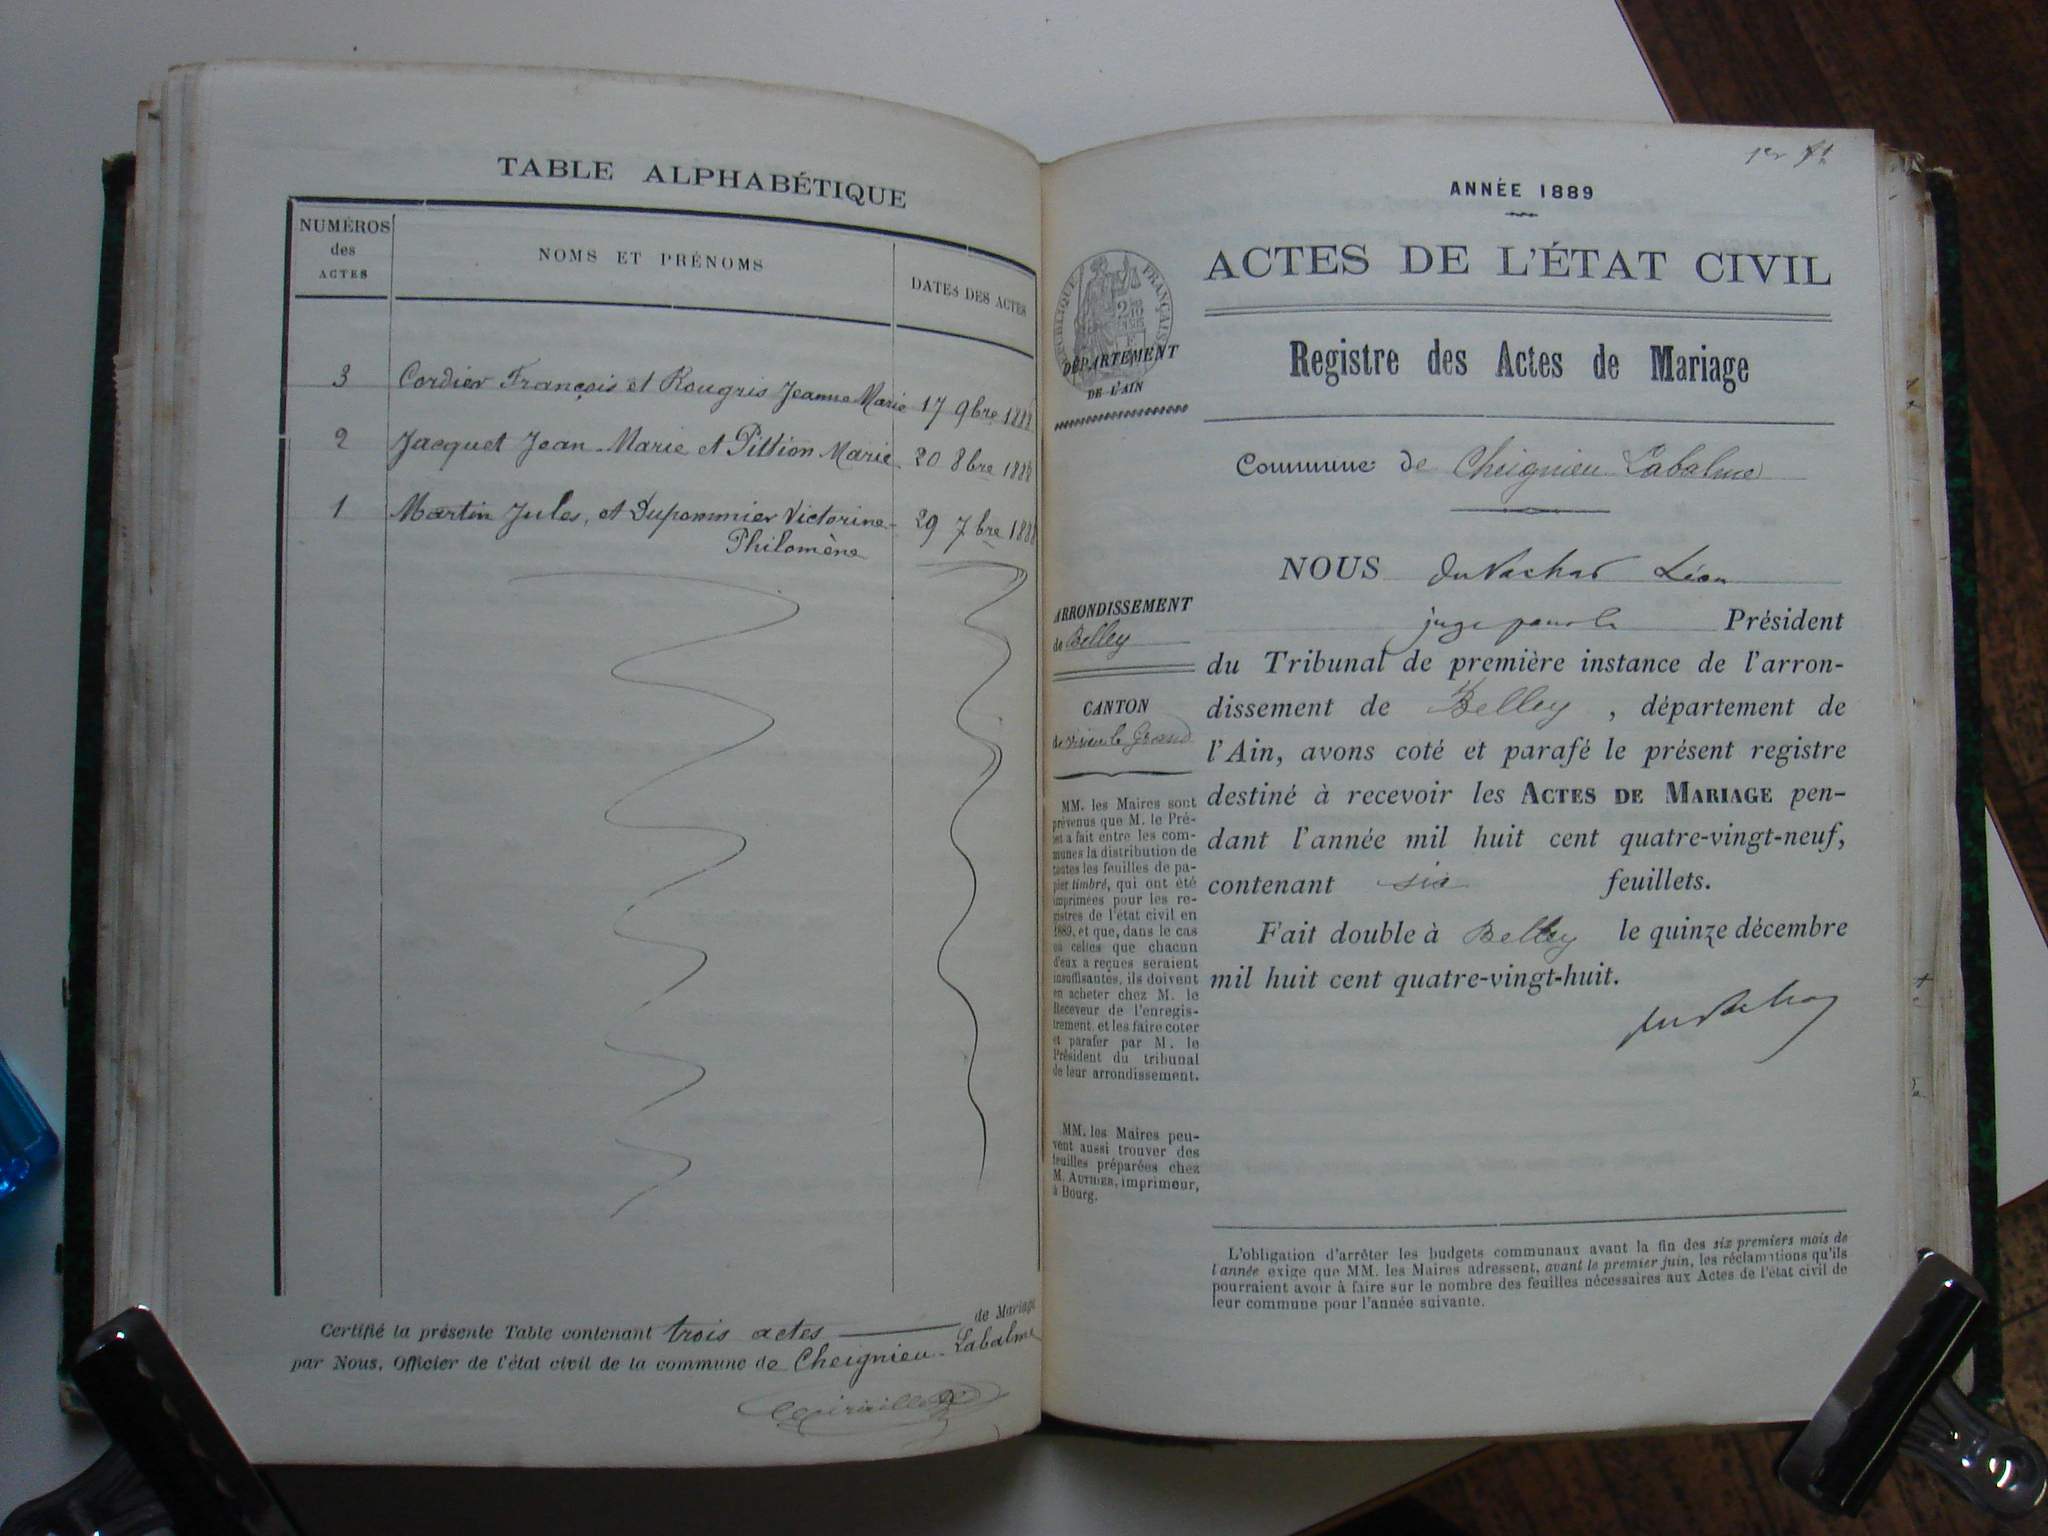 TABLE ALPHABÉTIQUE
NUMÉROS
des
ACTES
NOMS ET PRÉNOMS
DATES DES ACTES
3 Cordier François et Rougris Jeanne Marie 17 9bre 1888
2 Jacquet Jean-Marie et Pittion Marie 20 8bre 1888
1 Martin Jules, et Dupommier Victorine- 29 7bre 1888
Philomène
Certifié la présente Table contenant trois actes de Mariage
par Nous, Officier de l'état civil de la commune de Cheignieu-Labalme
1er
ANNÉE 1889
ACTES DE L'ÉTAT CIVIL
RÉPUBLIQUE FRANÇAISE
DÉPARTEMENT
DE L'AIN
Registre des Actes de Mariage
Commune de Cheignieu Labalme
NOUS Léon
juge pour le Président
du Tribunal de première instance de l'arron-
dissement de Belley, département de
l'Ain, avons coté et parafé le présent registre
destiné à recevoir les ACTES DE MARIAGE pen-
dant l'année mil huit cent quatre-vingt-neuf,
contenant six feuillets.
Fait double à Belley le quinze décembre
mil huit cent quatre-vingt-huit.
ARRONDISSEMENT
de Belley
CANTON
de virieu le Grand
MM. les Maires sont
prévenus que M. le Pré-
fet a fait entre les com-
munes la distribution de
toutes les feuilles de pa-
pier timbré, qui ont été
imprimées pour les re-
gistres de l'état civil en
1889, et que, dans le cas
où celles que chacun
d'eux a reçues seraient
insuffisantes, ils doivent
en acheter chez M. le
Receveur de l'enregis-
trement, et les faire coter
et parafer par M. le
Président du tribunal
de leur arrondissement.
MM. les Maires peu-
vent aussi trouver des
feuilles préparées chez
M. AUTHIER, imprimeur,
à Bourg.
L'obligation d'arrêter les budgets communaux avant la fin des six premiers mois de
l'année exige que MM. les Maires adressent, avant le premier juin, les réclamations qu'ils
pourraient avoir à faire sur le nombre des feuilles nécessaires aux Actes de l'état civil de
leur commune pour l'année suivante.